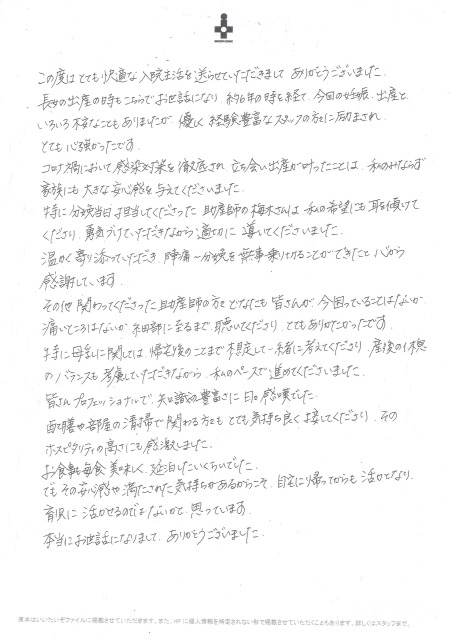 この度はとても快適な入院生活を送らせていただきまして ありがとうございました。
長女の出産の時もこちらでお世話になり、約6年の時を経て、今回の妊娠、出産と、
いろいろ不安なこともありましたが 優しく 経験豊富なスタッフの方々に励まされ、
とても心強かったです。
コロナ禍において感染対策を徹底され 立ち会い出産が叶ったことは、私のみならず
家族にも大きな安心感を与えてくださいました。
特に分娩当日、担当してくださった 助産師の梅木さんは 私の希望にも耳を傾けて
くださり、勇気づけていただきながら適切に 導いてくださいました。
温かく寄り添っていただき、陣痛〜分娩を無事乗り切ることができたと心から
感謝しています。
その他 関わってくださった助産師の方々どなたにも皆さんが、今困っていることはないか、
痛いところはないか、細部に至るまで聴いてくださり、とてもありがたかったです。
特に母乳に関しては 帰宅後のことまで想定して一緒に考えてくださり、産後の休息
のバランスも考慮していただきながら、私のペースで進めてくださいました。
皆さんプロフェッショナルで、知識の豊富さに日々感嘆でした。
配膳や部屋の清掃で関わる方々も とても気持ち良く接してくださり、その
ホスピタリティの高さにも感激しました。
お食事も毎食美味しく、延泊したいくらいでした。
でも その安心感や満たされた気持ちがあるからこそ、自宅に帰ってからも活力となり、
育児に 活かせるのではないかと 思っています。
本当にお世話になりまして、ありがとうございました。
原本はいいたいぞファイルに掲載させていただきます。また、HPに個人情報を特定されない形で掲載させていただくこともあります。詳しくはスタッフまで。